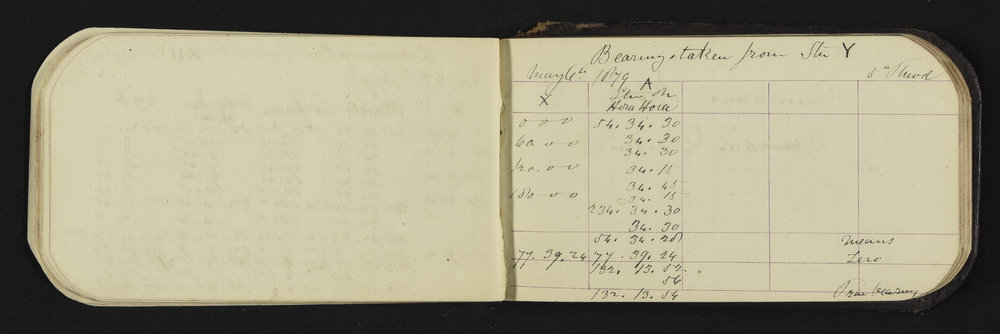 Bearings taken from Stn Y
May 6th 1879 5" Theod
A
X Stn on
Hora Hora
0 0 0 54. 34. 30
34. 30
60. 00 34. 30
120. 00 34. 15
34. 45
180 - 00 34. 15
234. 34. 30
34. 30
54. 34. 28 means
77. 39. 24 77. 39. 24 Zero
132. 13. 52
56
132. 13. 54 True bearing